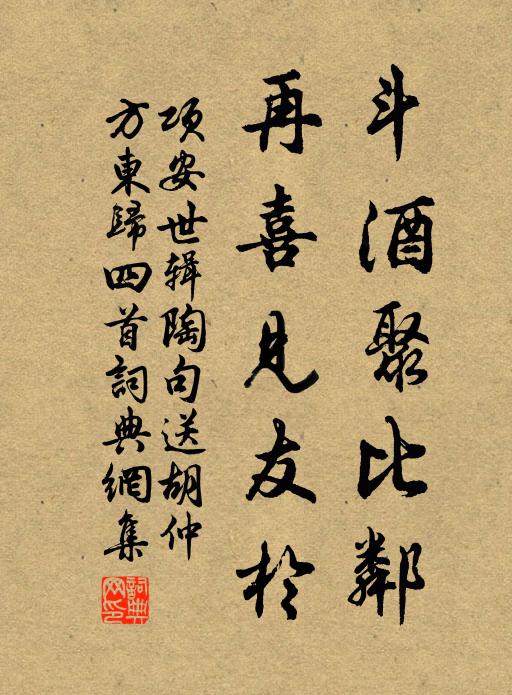 斗酒聚比鄰
再喜見友於
項安世輯陶句送胡仲
方東歸四首詞典網集
詞典網印